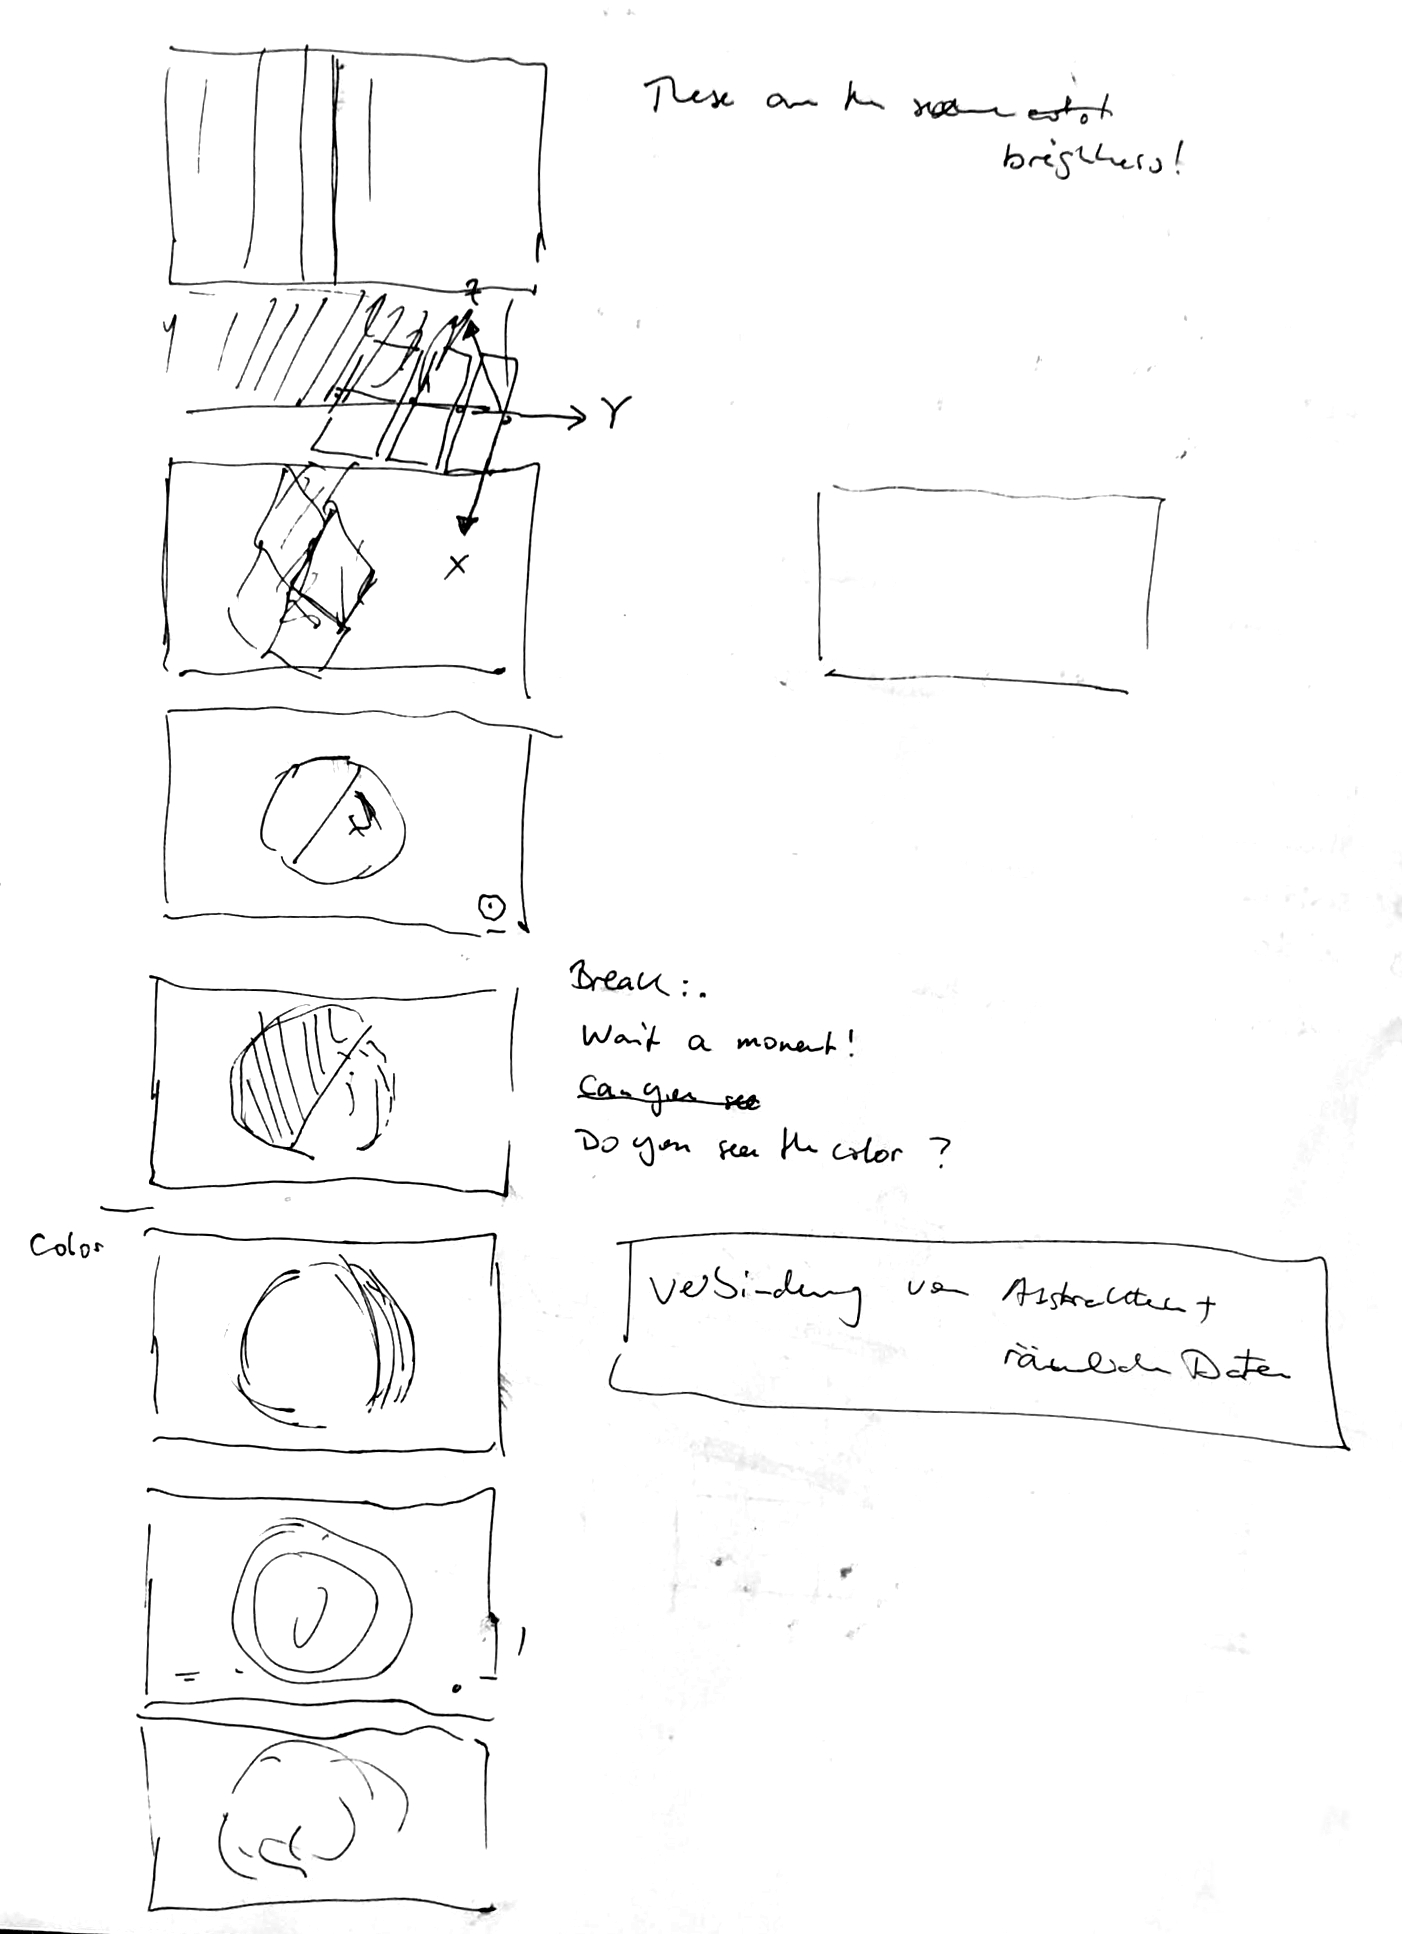 These are the same color
brightness!
Z
Y
X
Break:.
Wait a moment!
Can you see
Do you see the color ?
Color
Verbindung von Abstrakten +
räumlichen Daten